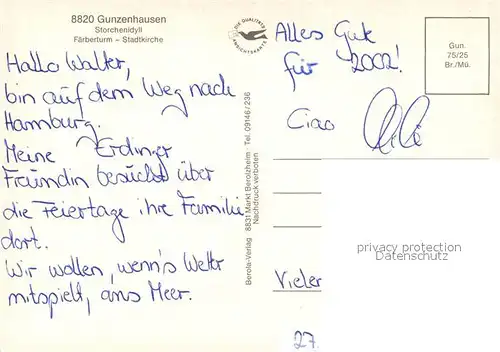 8820 Gunzenhausen
Storchenidyll
Färberturm – Stadtkirche
Hallo Walter,
bin auf dem Weg nach
Hamburg.
Meine Erdinger
Freundin besucht über
die Feiertage ihre Familie
dort.
Wir wollen, wenn's Wetter
mitspielt, ans Meer.
DIE QUALITÄTS
ANSICHTSKARTE
Berola-Verlag 8831 Markt Berolzheim Tel. 09146/236
Nachdruck verboten
Alles Gute
für 2002!
Ciao
Gun.
75/25
Br./Mü.
privacy protection
Datenschutz
Vieler
27.